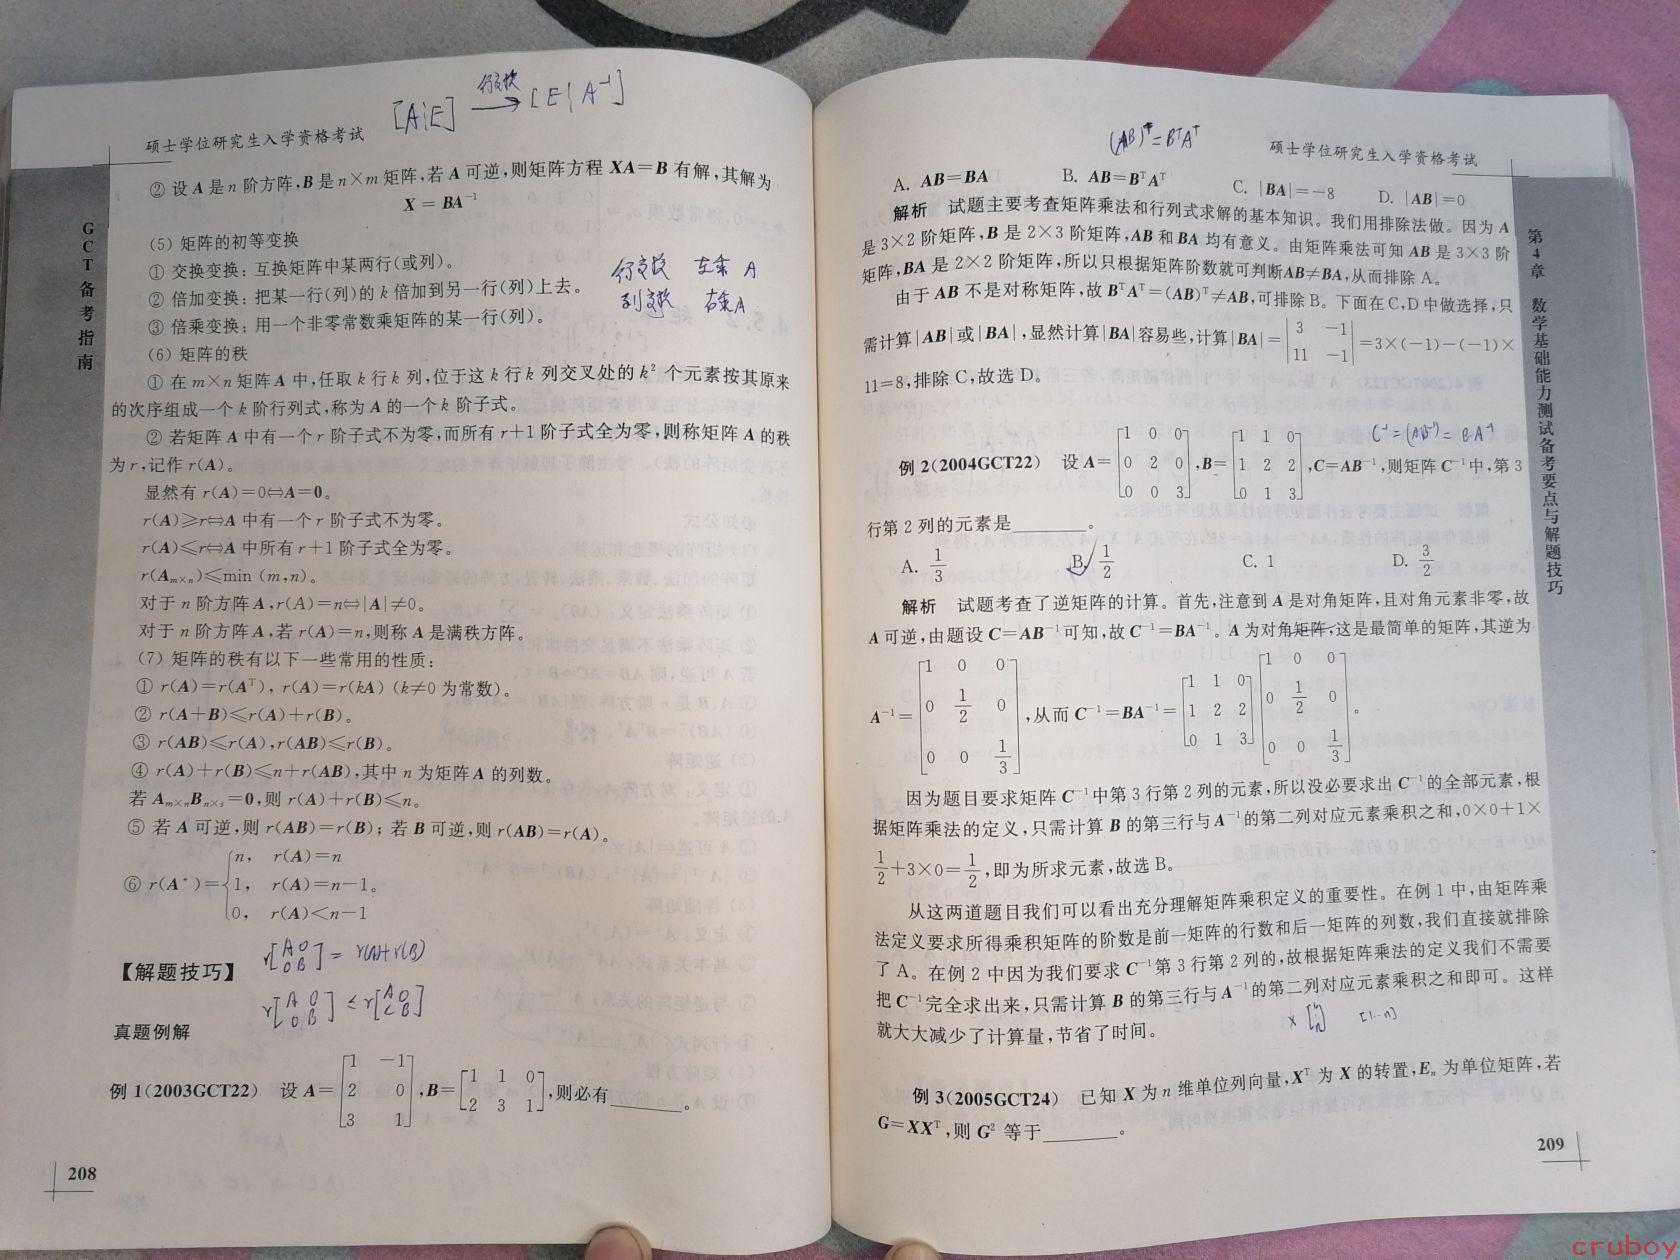 [A|E] 行变换→ [E|A⁻¹]
硕士学位研究生入学资格考试
GCT备考指南
② 设 A 是 n 阶方阵,B 是 n×m 矩阵,若 A 可逆,则矩阵方程 XA=B 有解,其解为
X = BA⁻¹
(5) 矩阵的初等变换
① 交换变换: 互换矩阵中某两行(或列)。
② 倍加变换: 把某一行(列)的 k 倍加到另一行(列)上去。
③ 倍乘变换: 用一个非零常数乘矩阵的某一行(列)。
行变换 左乘 A
列变换 右乘 A
(6) 矩阵的秩
① 在 m×n 矩阵 A 中,任取 k 行 k 列,位于这 k 行 k 列交叉处的 k² 个元素按其原来
的次序组成一个 k 阶行列式,称为 A 的一个 k 阶子式。
② 若矩阵 A 中有一个 r 阶子式不为零,而所有 r+1 阶子式全为零,则称矩阵 A 的秩
为 r,记作 r(A)。
显然有 r(A)=0⇔A=0。
r(A)≥r⇔A 中有一个 r 阶子式不为零。
r(A)≤r⇔A 中所有 r+1 阶子式全为零。
r(Aₘₓₙ)≤min (m,n)。
对于 n 阶方阵 A,r(A)=n⇔|A|≠0。
对于 n 阶方阵 A,若 r(A)=n,则称 A 是满秩方阵。
(7) 矩阵的秩有以下一些常用的性质:
① r(A)=r(Aᵀ), r(A)=r(kA) (k≠0 为常数)。
② r(A+B)≤r(A)+r(B)。
③ r(AB)≤r(A),r(AB)≤r(B)。
④ r(A)+r(B)≤n+r(AB),其中 n 为矩阵 A 的列数。
若 AₘₓₙBₙₓₛ=0,则 r(A)+r(B)≤n。
⑤ 若 A 可逆,则 r(AB)=r(B); 若 B 可逆,则 r(AB)=r(A)。
⑥ r(A*)={n, r(A)=n
1, r(A)=n-1。
0, r(A)<n-1
【解题技巧】
r[A 0; 0 B] = r(A)+r(B)
r[A 0; 0 B] ≤ r[A 0; C B]
真题例解
例 1(2003GCT22) 设 A=[1 -1; 2 0; 3 1],B=[1 1 0; 2 3 1],则必有______。
208
(AB)ᵀ=BᵀAᵀ
硕士学位研究生入学资格考试
第4章 数学基础能力测试备考要点与解题技巧
A. AB=BA B. AB=BᵀAᵀ C. |BA|=-8 D. |AB|=0
解析 试题主要考查矩阵乘法和行列式求解的基本知识。我们用排除法做。因为 A
是 3×2 阶矩阵,B 是 2×3 阶矩阵,AB 和 BA 均有意义。由矩阵乘法可知 AB 是 3×3 阶
矩阵,BA 是 2×2 阶矩阵,所以只根据矩阵阶数就可判断AB≠BA,从而排除 A。
由于 AB 不是对称矩阵,故 BᵀAᵀ=(AB)ᵀ≠AB,可排除 B。下面在 C,D 中做选择,只
需计算|AB|或|BA|,显然计算|BA|容易些,计算|BA|=|3 -1; 11 -1|=3×(-1)-(-1)×
11=8,排除 C,故选 D。
C⁻¹=(AB⁻¹)=BA⁻¹
例 2(2004GCT22) 设 A=[1 0 0; 0 2 0; 0 0 3],B=[1 1 0; 1 2 2; 0 1 3],C=AB⁻¹,则矩阵 C⁻¹中,第 3
行第 2 列的元素是______。
A. 1/3 B. 1/2 C. 1 D. 3/2
解析 试题考查了逆矩阵的计算。首先,注意到 A 是对角矩阵,且对角元素非零,故
A 可逆,由题设 C=AB⁻¹可知,故 C⁻¹=BA⁻¹。A 为对角矩阵,这是最简单的矩阵,其逆为
A⁻¹=[1 0 0; 0 1/2 0; 0 0 1/3],从而 C⁻¹=BA⁻¹=[1 1 0; 1 2 2; 0 1 3][1 0 0; 0 1/2 0; 0 0 1/3]。
因为题目要求矩阵 C⁻¹中第 3 行第 2 列的元素,所以没必要求出 C⁻¹的全部元素,根
据矩阵乘法的定义,只需计算 B 的第三行与 A⁻¹的第二列对应元素乘积之和,0×0+1×
1/2+3×0=1/2,即为所求元素,故选 B。
从这两道题目我们可以看出充分理解矩阵乘积定义的重要性。在例 1 中,由矩阵乘
法定义要求所得乘积矩阵的阶数是前一矩阵的行数和后一矩阵的列数,我们直接就排除
了 A。在例 2 中因为我们要求 C⁻¹第 3 行第 2 列的,故根据矩阵乘法的定义我们不需要
把 C⁻¹完全求出来,只需计算 B 的第三行与 A⁻¹的第二列对应元素乘积之和即可。这样
就大大减少了计算量,节省了时间。
例 3(2005GCT24) 已知 X 为 n 维单位列向量,Xᵀ 为 X 的转置,Eₙ 为单位矩阵,若
G=XXᵀ,则 G² 等于______。
209
cruboy